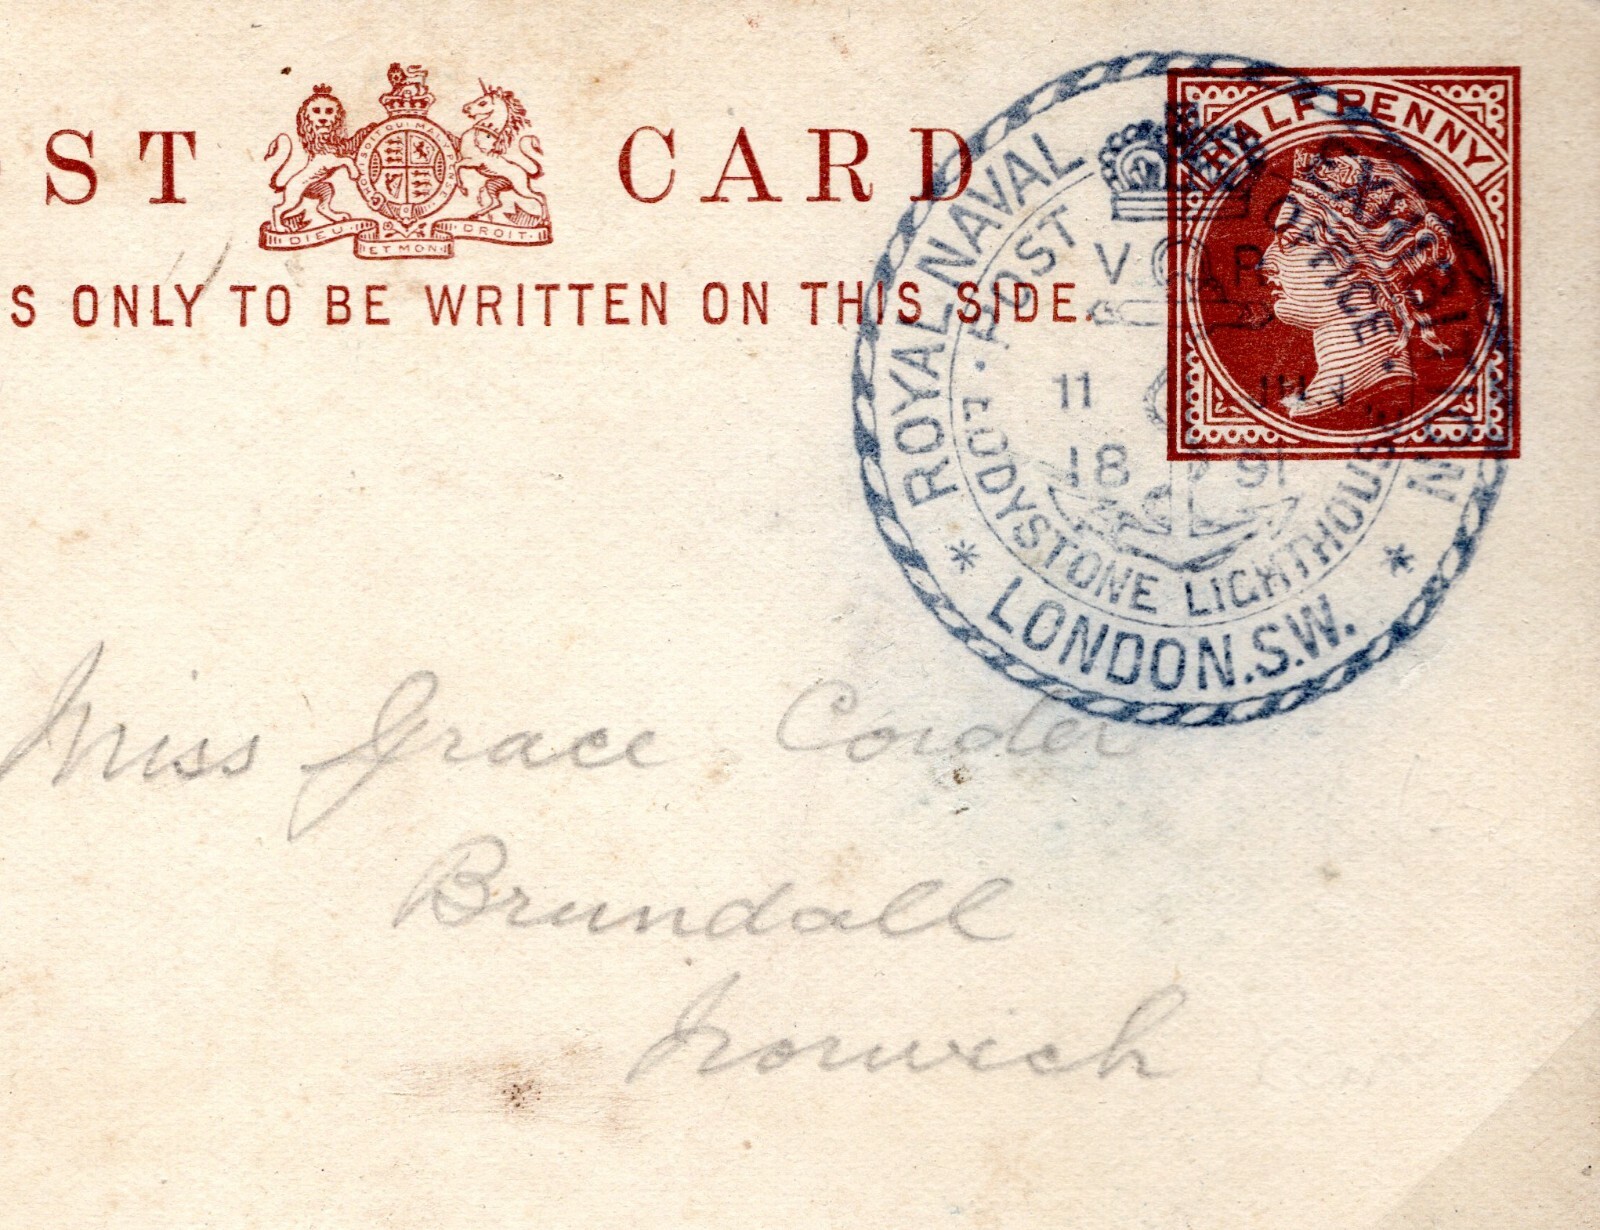 ST CARD
SOIT QUI MAL
DIEU ET MON DROIT.
S ONLY TO BE WRITTEN ON THIS SIDE.
HALFPENNY
ROYAL NAVAL EXHIBITION
* LONDON.S.W. *
POST OFFICE.
EDDYSTONE LIGHTHOUSE
V R
11 JUN
18 91
Miss Grace Corder
Brundall
Norwich